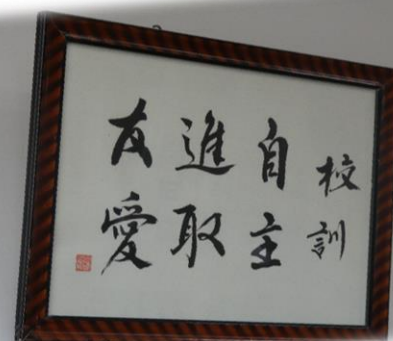 校訓
自主
進取
友愛